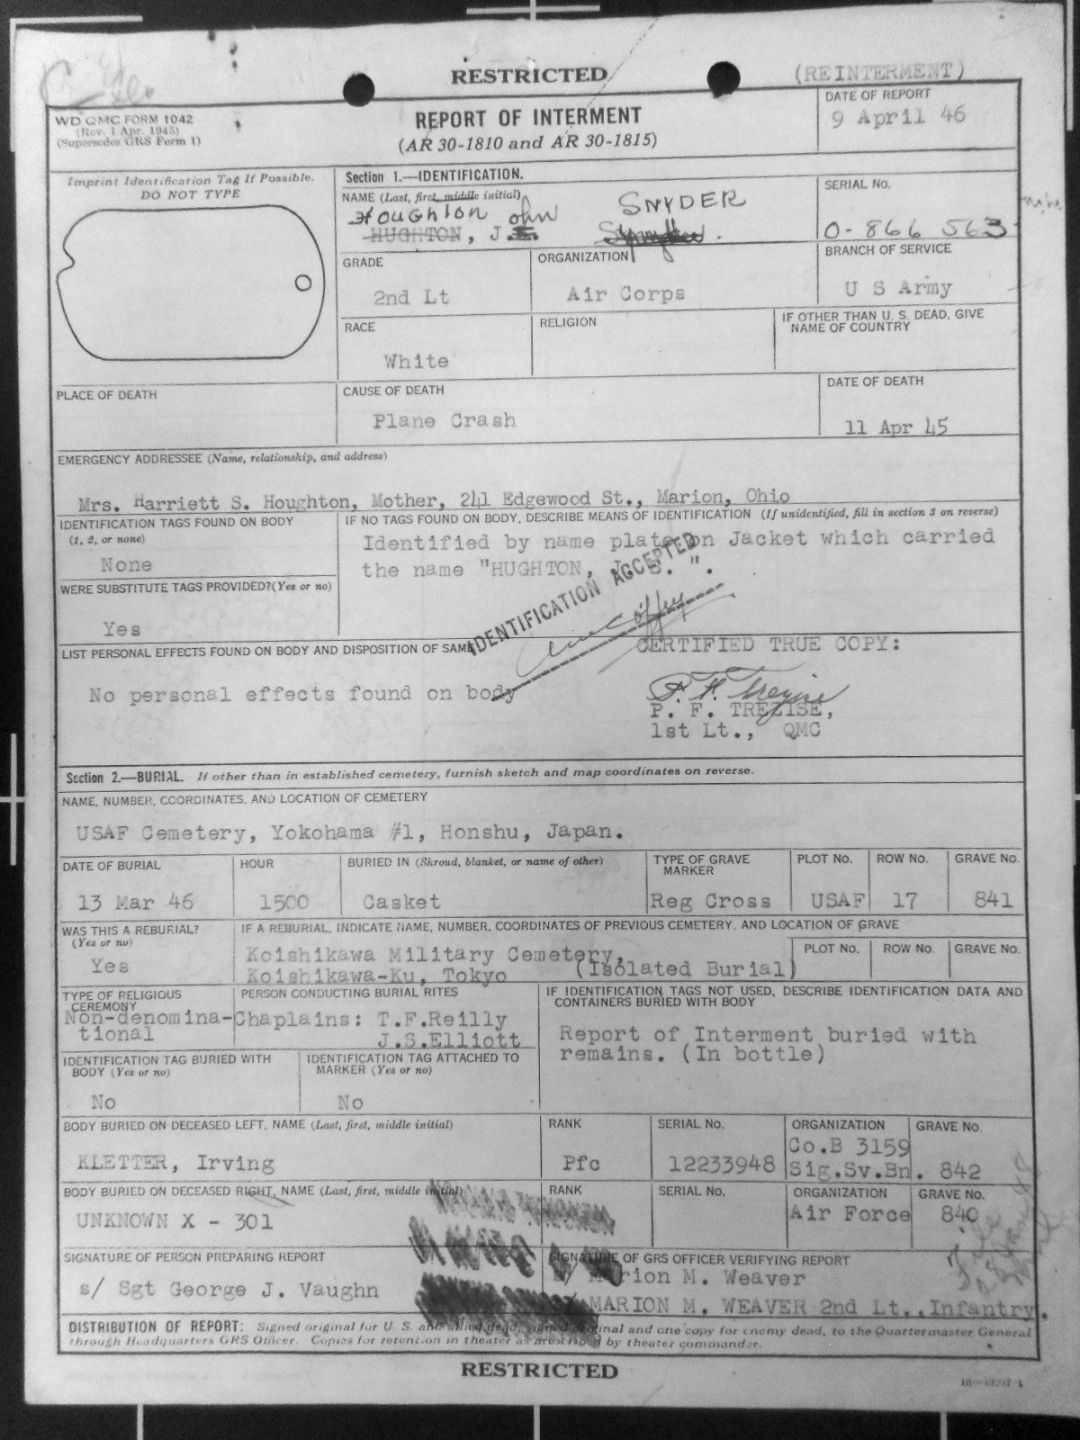 RESTRICTED
(REINTERMENT)
WD QMC FORM 1042
(Rev. 1 Apr. 1945)
(Supersedes GRS Form 1)
REPORT OF INTERMENT
(AR 30-1810 and AR 30-1815)
DATE OF REPORT
9 April 46
Imprint Identification Tag If Possible.
DO NOT TYPE
Section 1.—IDENTIFICATION.
NAME (Last, first, middle initial)
Houghton ohn SNYDER
HUGHTON, J.S.
SERIAL No.
O-866 563
GRADE
2nd Lt
ORGANIZATION
Air Corps
BRANCH OF SERVICE
U S Army
RACE
White
RELIGION
IF OTHER THAN U. S. DEAD, GIVE
NAME OF COUNTRY
PLACE OF DEATH
CAUSE OF DEATH
Plane Crash
DATE OF DEATH
11 Apr 45
EMERGENCY ADDRESSEE (Name, relationship, and address)
Mrs. Harriett S. Houghton, Mother, 241 Edgewood St., Marion, Ohio
IDENTIFICATION TAGS FOUND ON BODY
(1, 2, or none)
None
IF NO TAGS FOUND ON BODY, DESCRIBE MEANS OF IDENTIFICATION (If unidentified, fill in section 3 on reverse)
Identified by name plate on Jacket which carried
the name "HUGHTON, J. S. ".
WERE SUBSTITUTE TAGS PROVIDED? (Yes or no)
Yes
IDENTIFICATION ACCEPTED
LIST PERSONAL EFFECTS FOUND ON BODY AND DISPOSITION OF SAME
No personal effects found on body
CERTIFIED TRUE COPY:
P. F. Trezise
P. F. TREZISE,
1st Lt., QMC
Section 2.—BURIAL. If other than in established cemetery, furnish sketch and map coordinates on reverse.
NAME, NUMBER, COORDINATES, AND LOCATION OF CEMETERY
USAF Cemetery, Yokohama #1, Honshu, Japan.
DATE OF BURIAL
13 Mar 46
HOUR
1500
BURIED IN (Shroud, blanket, or name of other)
Casket
TYPE OF GRAVE
MARKER
Reg Cross
PLOT No.
USAF
ROW No.
17
GRAVE No.
841
WAS THIS A REBURIAL?
(Yes or no)
Yes
IF A REBURIAL, INDICATE NAME, NUMBER, COORDINATES OF PREVIOUS CEMETERY, AND LOCATION OF GRAVE
Koishikawa Military Cemetery,
Koishikawa-Ku, Tokyo (Isolated Burial)
PLOT No.
ROW No.
GRAVE No.
TYPE OF RELIGIOUS
CEREMONY
Non-denomina-
tional
PERSON CONDUCTING BURIAL RITES
Chaplains: T.F.Reilly
J.S.Elliott
IF IDENTIFICATION TAGS NOT USED, DESCRIBE IDENTIFICATION DATA AND
CONTAINERS BURIED WITH BODY
Report of Interment buried with
remains. (In bottle)
IDENTIFICATION TAG BURIED WITH
BODY (Yes or no)
No
IDENTIFICATION TAG ATTACHED TO
MARKER (Yes or no)
No
BODY BURIED ON DECEASED LEFT, NAME (Last, first, middle initial)
KLETTER, Irving
RANK
Pfc
SERIAL No.
12233948
ORGANIZATION
Co.B 3159
Sig.Sv.Bn.
GRAVE No.
842
BODY BURIED ON DECEASED RIGHT, NAME (Last, first, middle initial)
UNKNOWN X - 301
RANK
SERIAL No.
ORGANIZATION
Air Force
GRAVE No.
840
SIGNATURE OF PERSON PREPARING REPORT
s/ Sgt George J. Vaughn
SIGNATURE OF GRS OFFICER VERIFYING REPORT
Marion M. Weaver
MARION M. WEAVER 2nd Lt., Infantry.
DISTRIBUTION OF REPORT: Signed original for U. S. and allied dead, signed original and one copy for enemy dead, to the Quartermaster General
through Headquarters GRS Officer. Copies for retention in theater as prescribed by theater commander.
RESTRICTED